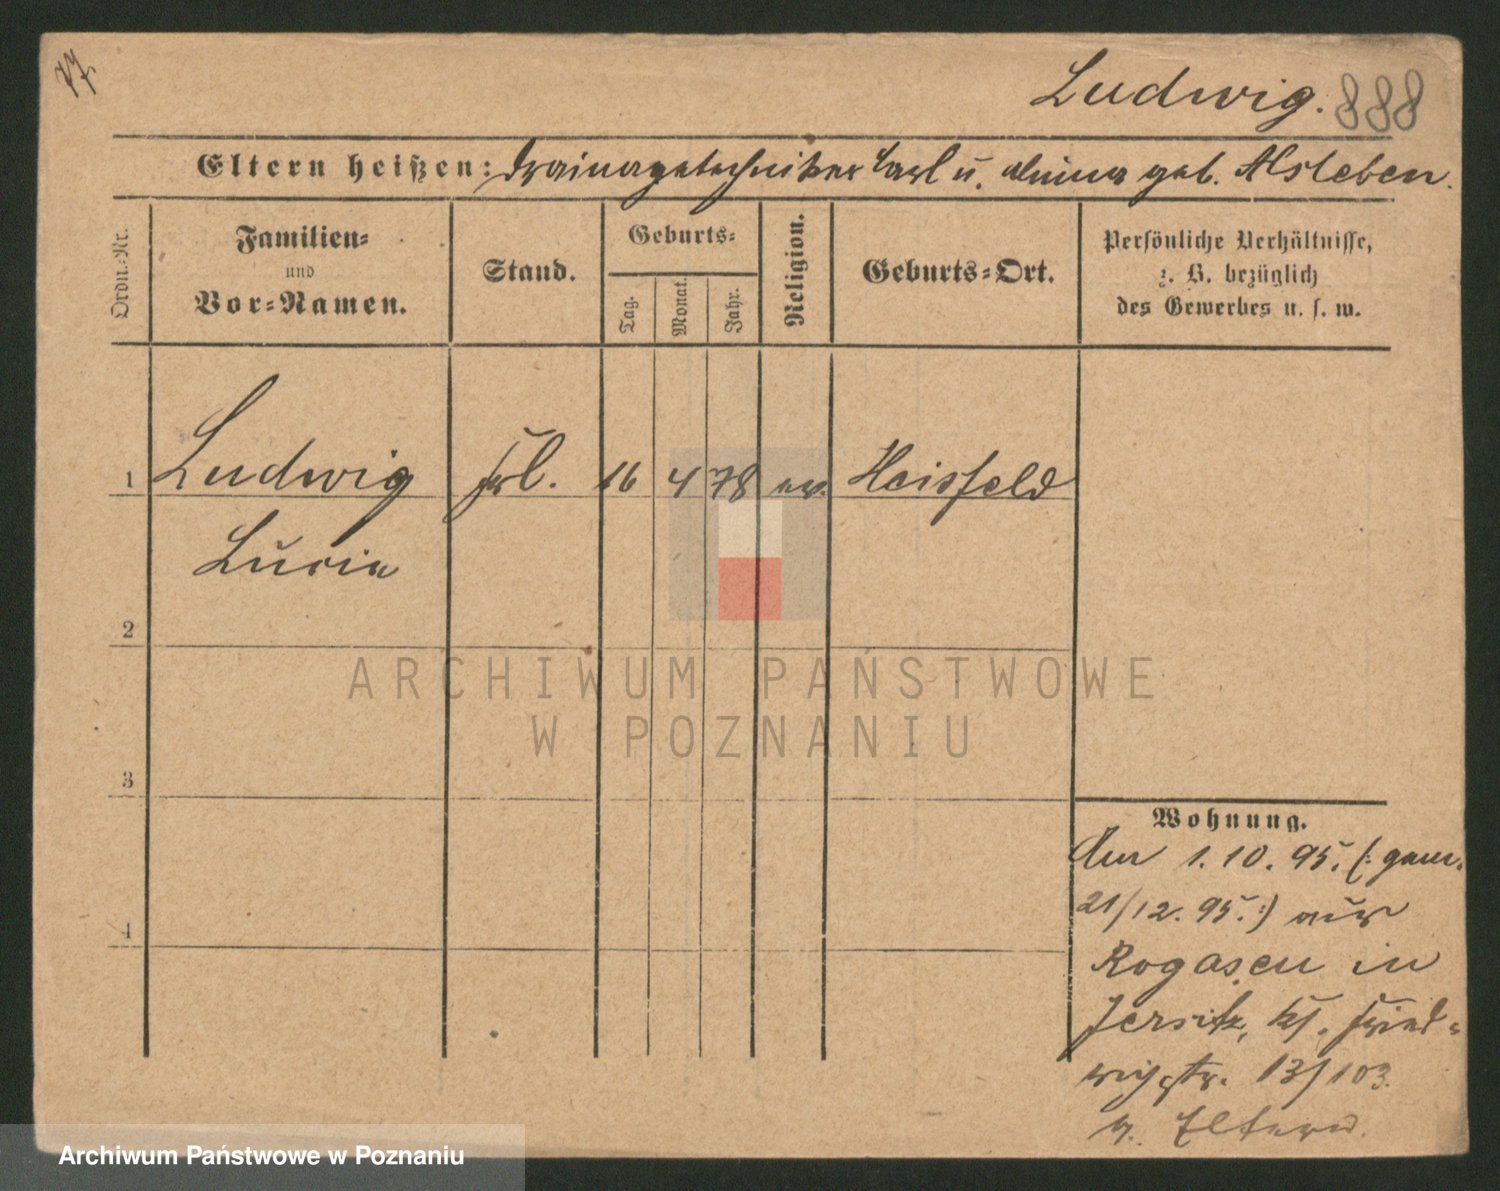 77
Ludwig. 888
Eltern heißen: Drainagetechniker Carl u. Anna geb. Alsleben.
Ordn.-Nr.
Familien-
und
Vor-Namen.
Stand.
Geburts-
Tag.
Monat.
Jahr.
Religion.
Geburts-Ort.
Persönliche Verhältnisse,
z. B. bezüglich
des Gewerbes u. s. w.
1 Ludwig frl. 16 4 78 ev. Heisfeld
Lucie
2
3
4
ARCHIWUM PAŃSTWOWE
W POZNANIU
Wohnung.
Am 1. 10. 95. (: gem.
21/12. 95. :) aus
Rogasen in
Jersitz, Kf. Fried-
richstr. 13/103
b. Eltern.
Archiwum Państwowe w Poznaniu